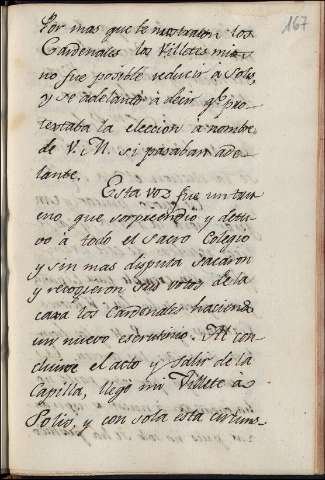 167
Por mas que le mostraron los
Cardenales los Villetes mios
no fue posible reducir à Solis,
y se adelantò à decir q.e pro-
textaba la eleccion a nombre
de V. M. si pasaban ade-
lante.
Esta voz fue un true-
eno que sorprendio y detu-
vo à todo el Sacro Colegio
y sin mas disputa sacaron
y recogieron sus votos de la
caxa los Cardenales haciendo
un nuevo escrutinio. Al con-
cluirse el acto y salir de la
Capilla, llegò mi Villete a
Solis, y con sola esta circuns-